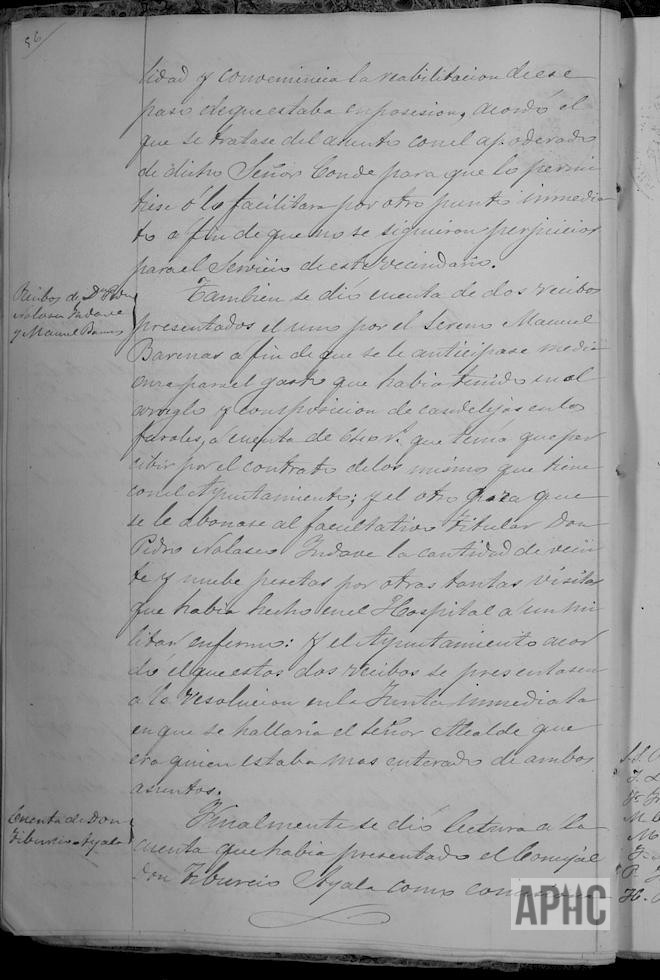 56
lidad y conveniencia la reabilitacion de ese
paso de que estaba en posesion, acordó el
que se tratase del asunto con el apoderado
de dicho Señor Conde para que lo permi
tiese ó lo facilitara por otro punto inmedia
to a fin de que no se siguieran perjuicios
para el Servicio de este vecindario.
Recibos de Dn Pedro
Nolasco Indave
y Manuel Barenas
Tambien se dió cuenta de dos recibos
presentados el uno por el Sereno Manuel
Barenas a fin de que se le anticipase media
onza para el gasto que habia tenido en el
arreglo y composicion de candelejas en los
faroles, á cuenta de que tenia que per
cibir por el contrato de los mismo que tiene
con el Ayuntamiento; y el otro para que
se le abonase al facultativo titular Don
Pedro Nolasco Indave la cantidad de vein
te y nuebe pesetas por otras tantas visitas
que habia hecho en el Hospital á un mi
litar enfermo: y el Ayuntamiento acor
dó el que estos dos recibos se presentasen
a la resolucion en la Junta inmediata
en que se hallaria el Señor Alcalde que
era quien estaba mas enterado de ambos
asuntos.
Cuenta de Don
Tiburcio Ayala
Finalmente se dió lectura a la
cuenta que habia presentado el Concejal
Don Tiburcio Ayala como
APHC